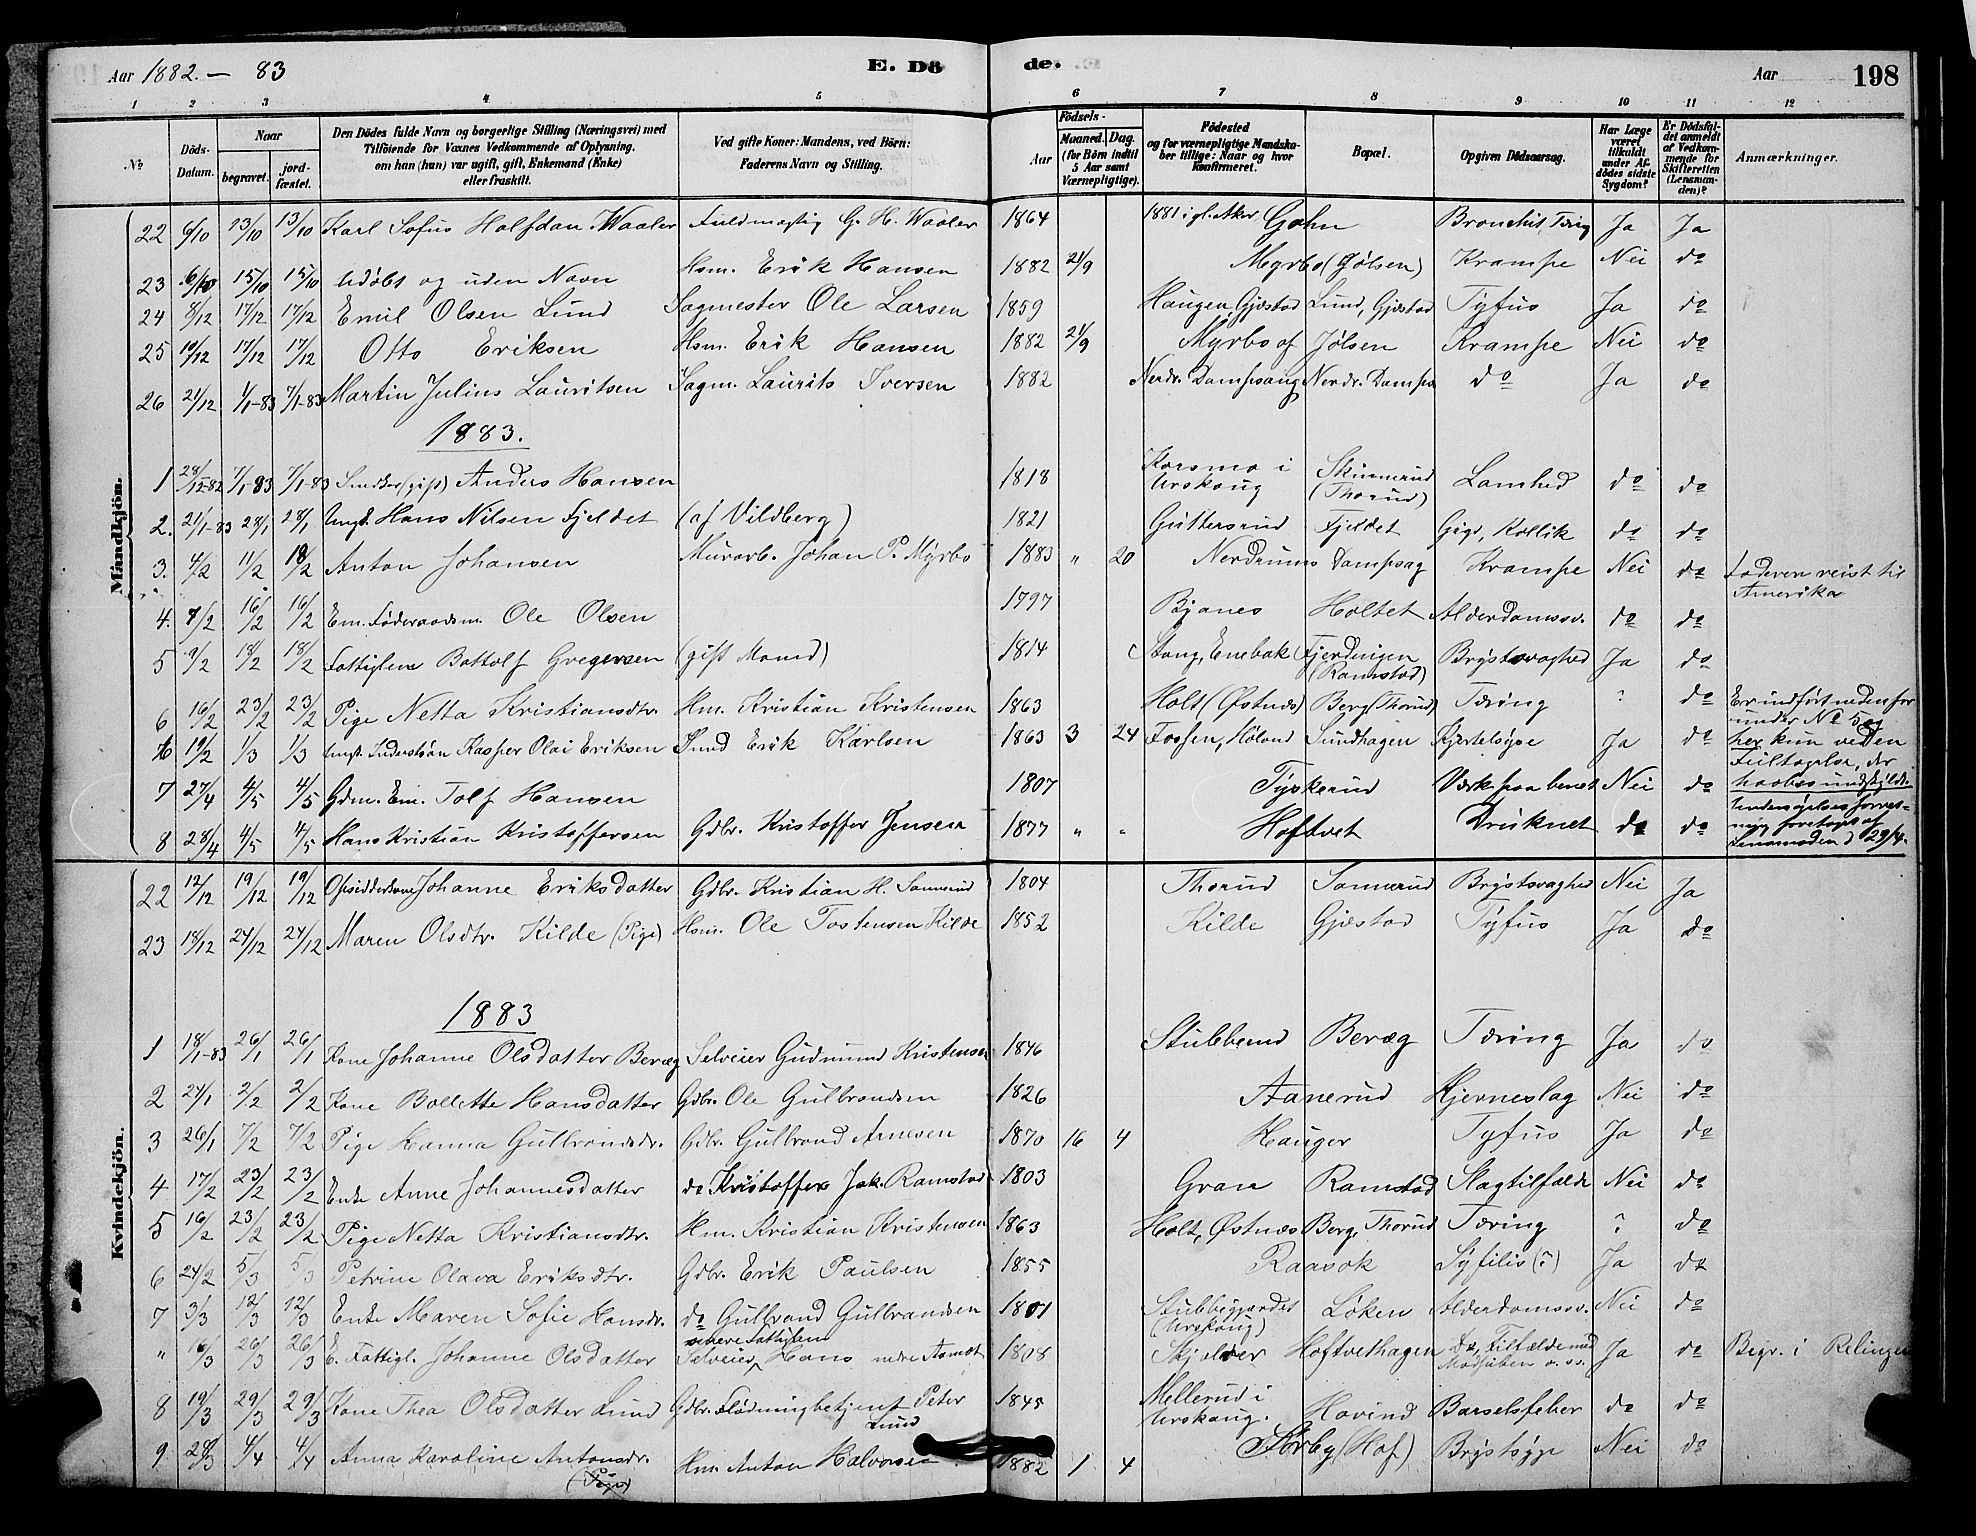 Aar 1882. — 83 E. Dö de. Aar 198
1 2 3 4 5 6 7 8 9 10 11 12
No Döds-Datum. Naar begravet. jord-fæstet. Den Dödes fulde Navn og borgerlige Stilling (Næringsvei) med Tilföiende for Voxnes Vedkommende af Oplysning, om han (hun) var ugift, gift, Enkemand (Enke) eller fraskilt. Ved gifte Koner: Mandens, ved Börn: Faderens Navn og Stilling. Födsels- Aar Maaned. Dag. (for Börn indtil 5 Aar samt Værnepligtige). Födested og for værnepligtige Mandskaber tillige: Naar og hvor Konfirmeret. Bopæl. Opgiven Dödsaarsag. Har Læge været tilkaldt under Afdödes sidste Sygdom? Er Dödsfaldet anmeldt af Vedkommende for Skifteretten (Lensmanden)? Anmærkninger.
Mandkjön.
22 6/10 13/10 13/10 Karl Sofus Halfdan Waaler Fuldmægtig G. H. Waaler 1864 1881 i gl. Aker Gahn Bronchit, Tæring Ja Ja
23 6/10 15/10 15/10 Udøbt og uden Navn Hsm. Erik Hansen 1882 21/9 Myrbo (Jølsen) Krampe Nei do
24 8/12 17/12 17/12 Emil Olsen Lund Sagmester Ole Larsen 1859 Haugen, Gjæstad Lund, Gjæstad Tyfus Ja do
25 10/12 17/12 17/12 Otto Eriksen Hsm. Erik Hansen 1882 21/9 Myrbo af Jølsen Krampe Nei do
26 21/12 1/1-83 7/1-83 Martin Julius Lauritsen Sagm. Laurits Iversen 1882 Nerdr. Dampsaug Nerdr. Damps. do Ja do
1883.
1 28/12-82 7/1-83 7/1-83 Snedker (gift) Anders Hansen 1818 Korsmo i Urskoug Skinnerud (Thorud) Lamhed do do
2. 21/1-83 28/1 28/1 Ungk. Hans Nilsen Fjeldet (af Vildberg) 1821 Guttersrud Fjeldet Gigt, Kollik do do
3. 4/2 11/2 18/2 Anton Johansen Murarb. Johan P. Myrbo 1883 " 20 Nerdrums Dampsag Krampe Nei do Faderen reist til Amerika
4. 7/2 16/2 16/2 Em. Føderaadsm. Ole Olsen 1797 Bjanes Holtet Alderdomssv. do do
5 9/2 18/2 18/2 Fattiglem Bottolf Gregersen (gift Mand) 1814 Stang, Enebak Fjerdingen (Ramstad) Brystsvaghed Ja do
6 16/2 23/2 23/2 Pige Netta Kristiansdtr. Hm. Kristian Kristensen 1863 Holt (Østnes) Berg (Thorud) Tæring ? do Er indført nedenfor under No 5 og her kun ved en Feiltagelse, der haabes undskyldt.
6 19/2 1/3 1/3 Ungk. Inderstsøn Kasper Olai Eriksen Sund Erik Karlsen 1863 3 24 Fossen, Høland Sundhagen Kjertelsyge Ja do
7 27/4 4/5 4/5 Gdm. Em. Tolf Hansen 1807 Tyskerud Værk paa benet Nei do
8 28/4 4/5 4/5 Hans Kristian Kristoffersen Gdbr. Kristoffer Jensen 1877 " " Hoftvet Druknet do do Undersøgelses forretning foretaget af Lensmanden d 29/4.
Kvindekjön.
22 12/12 19/12 19/12 Opsidderkone Johanne Eriksdatter Gdbr. Kristian H. Sannerud 1804 Thorud Sannerud Brystsvaghed Nei Ja
23 18/12 24/12 24/12 Maren Olsdtr. Kilde (Pige) Hsm. Ole Tostensen Kilde 1852 Kilde Gjæstad Tyfus Ja do
1883
1 18/1-83 26/1 26/1 Kone Johanne Olsdatter Beræg Selveier Gudmund Kristensen 1846 Stubberud Beræg Tæring Ja do
2 24/1 2/2 2/2 Kone Bollette Hansdatter Gdbr. Ole Gulbrandsen 1826 Aanerud Hjerneslag Nei do
3 26/1 7/2 7/2 Pige Hanna Gulbrandsdr. Gdbr. Gulbrand Arnesen 1870 16 4 Hauger Tyfus Ja do
4 17/2 23/2 23/2 Enke Anne Johannesdatter do Kristoffer Jak. Ramstad 1803 Gran Ramstad Slagtilfælde Nei do
5 16/2 23/2 23/2 Pige Netta Kristiansdtr. Hm. Kristian Kristensen 1863 Holt, Østnæs Berg, Thorud Tæring ? do
6 24/2 5/3 5/3 Petrine Olava Eriksdtr. Gdbr. Erik Paulsen 1855 Raasok Syfilis (?) Ja do
7 3/3 12/3 12/3 Enke Maren Sofie Hansdr. do Gulbrand Gulbrandsen 1801 Stubbegjærdet (Urskoug) Løken Alderdomssv. Nei do
" 16/3 26/3 26/3 E. Fattigl. Johanne Olsdatter Selveier, senere Fattiglem Hans nedre Asmot 1808 Skjelver Hoftvethagen Ja do Begr. i Relingen
8 19/3 29/3 29/3 Kone Thea Olsdatter Lund Gdbr. Flødningbetjent Peter Lund 1845 Mellerud i Urskoug. Hovind Barselsfeber do do
9 28/3 4/4 4/4 Anna Karoline Antonsdr. (Pige) Hm. Anton Halvorsen 1882 1 4 Sørby (Hof) Brystsyge Nei do